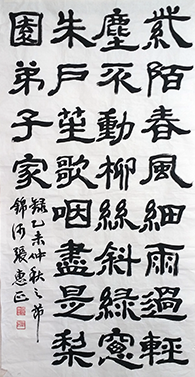 紫陌春風細雨過輕
塵不動柳絲斜綠窻
朱戶笙歌咽盡是梨
園弟子家
錄乙未仲秋之節
錦河張惠正